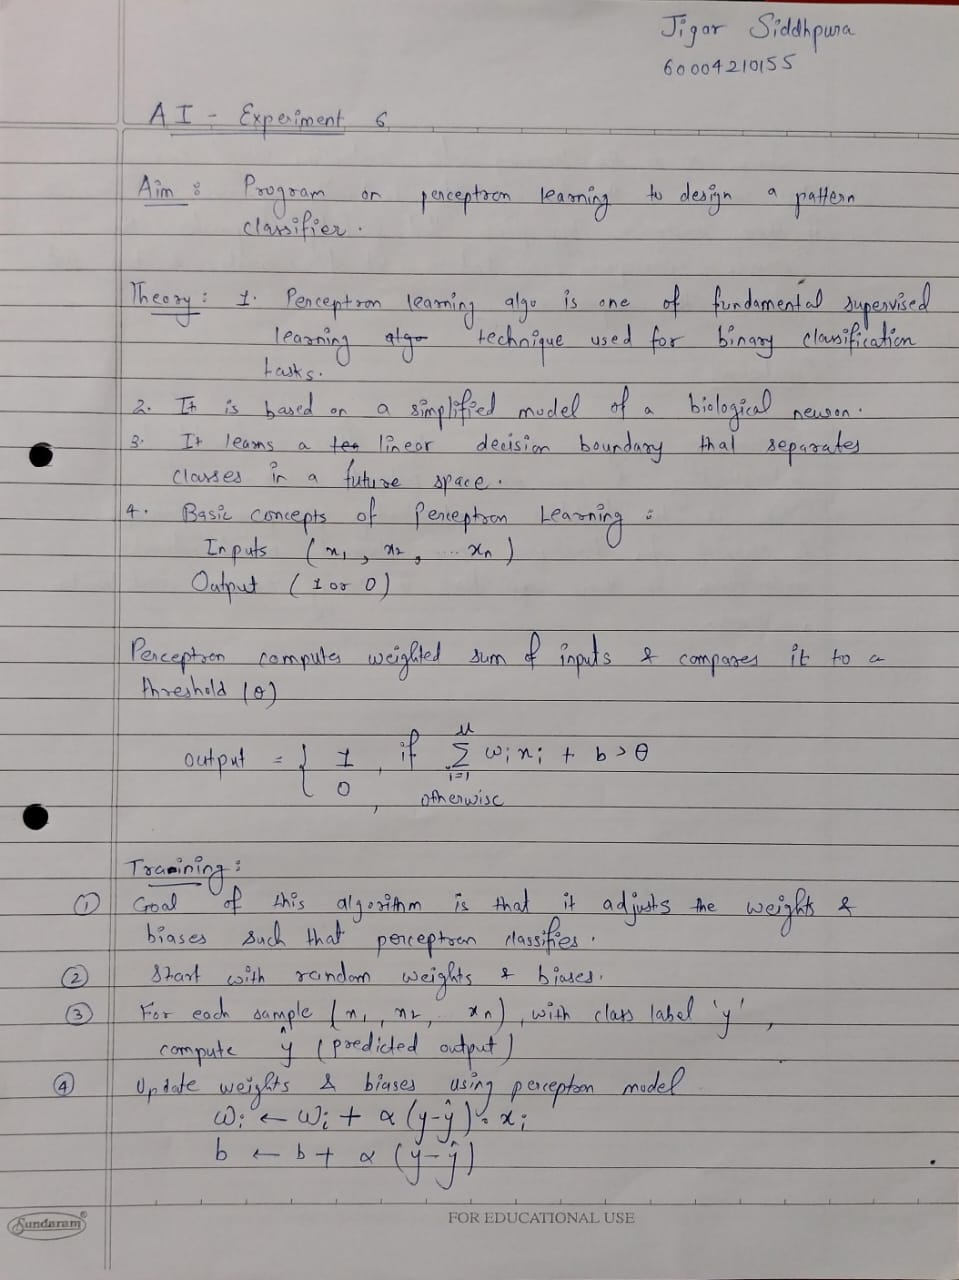 Jigar Siddhpura
60004210155
AI - Experiment 6
Aim : Program on perceptron learning to design a pattern
classifier.
Theory : 1. Perceptron learning algo is one of fundamental supervised
learning algo technique used for binary classification
tasks.
2. It is based on a simplified model of a biological neuron.
3. It learns a linear decision boundary that separates
classes in a future space.
4. Basic concepts of Perceptron Learning :
Inputs (x₁, x₂, ... xₙ)
Output (1 or 0)
Perceptron computes weighted sum of inputs & compares it to a
threshold (θ)
output = { 1, if Σ wᵢxᵢ + b > θ
i=1
0, otherwise
Training :
① Goal of this algorithm is that it adjusts the weights &
biases such that perceptron classifies.
② Start with random weights & biases.
③ For each sample (x₁, x₂, xₙ), with class label 'y',
compute ŷ (predicted output)
④ Update weights & biases using perceptron model
wᵢ ← wᵢ + α (y-ŷ) · xᵢ
b ← b + α (y-ŷ)
Sundaram®
FOR EDUCATIONAL USE